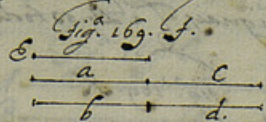 Fig.ª 169. F.
E
a c
b d.